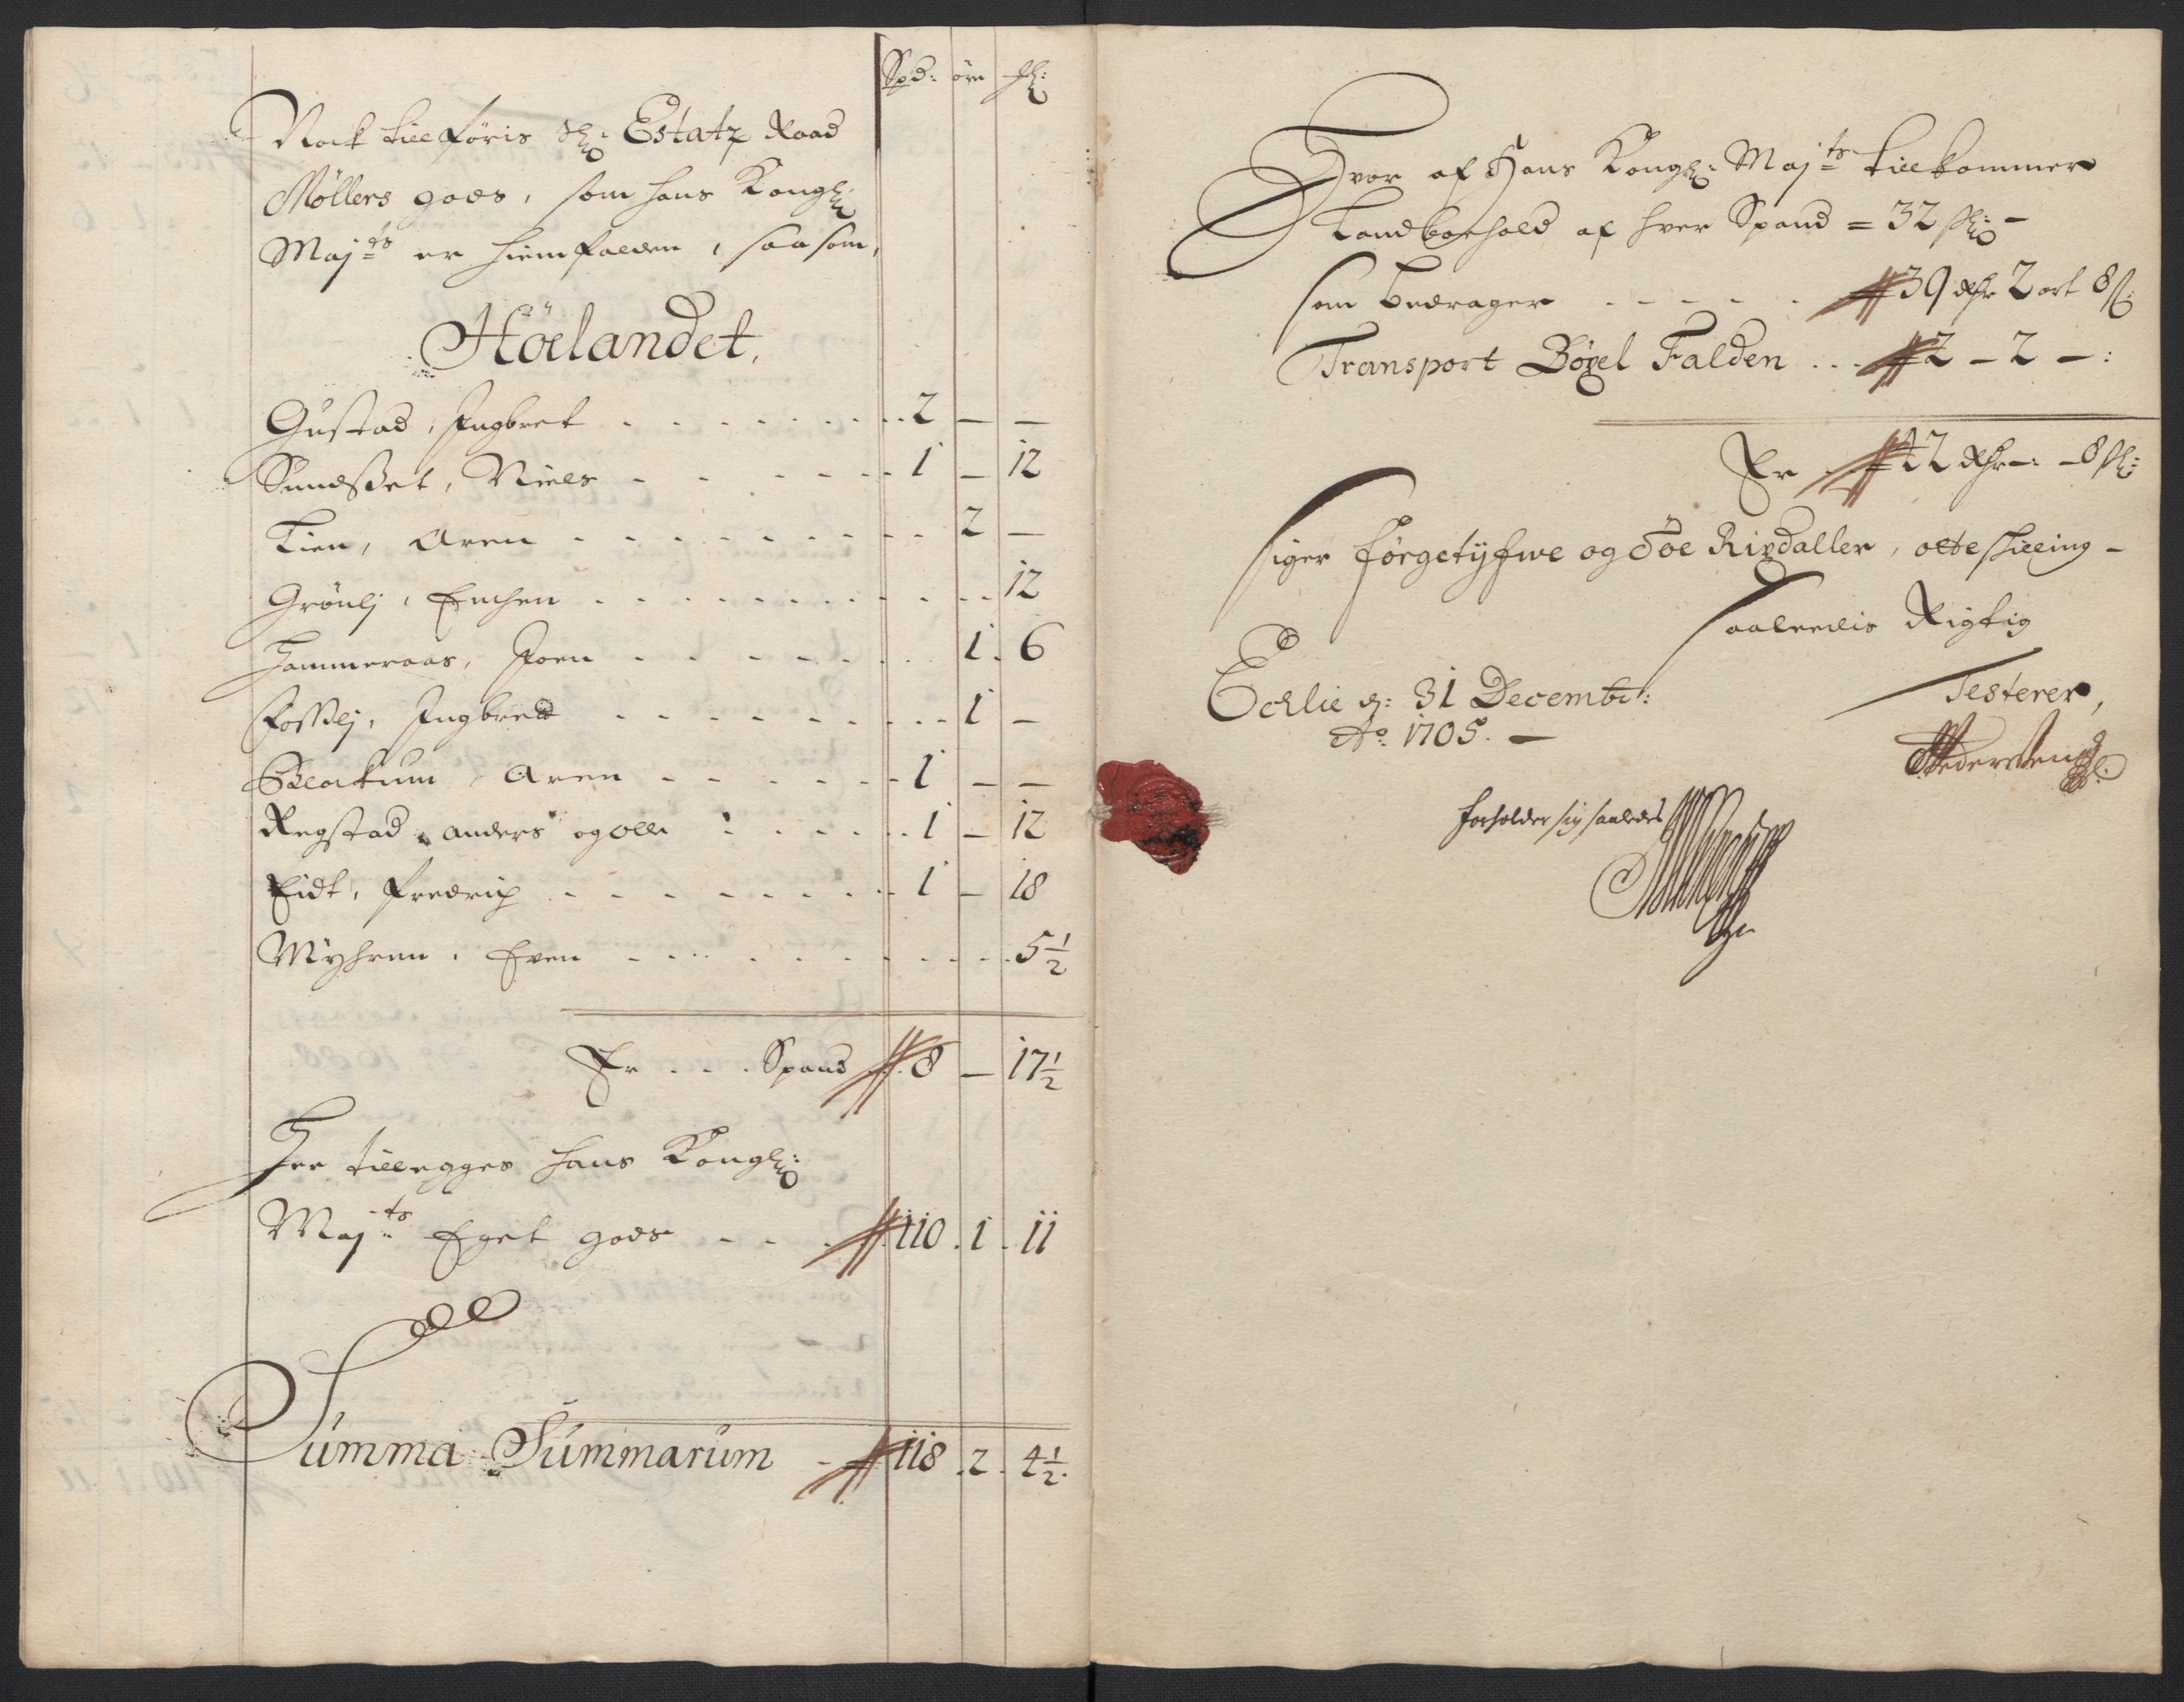 Spd: öre sl:
Nock till föris Sl: Estatz Raad
Möllers gods, som hans Kongl:
Maj:ts er hiemfalden, saasom,
Höelandet.
Gustad, Ingbret . . . . . . . 2 — —
Sundsset, Niels - - - - - - 1 — 12
Lien, Aren - - - - - - - - 2 —
Grönlj, Enchen . . . . . . . . . 12
Hammeraas, Joen - - - - - . . 1. 6
Fosslej, Ingbret - - - - - - - 1 —
Aren - - - - - - 1 — —
Regstad, Anders og Olle : . . . . 1 — 12
Eidt, Fredrich . - - - - - - - 1 — 18
Myhren, Even - - - . . . . . . 5 1/2
Er . . . Spand 8 — 17 1/2
Her tillegges hans Kongl:
Maj:ts Eget gods - - . 110 . 1 . 11
Summa Summarum - 118 . 2 . 4 1/2.
Hvor af Hans Kongl: Maj:ts tillkommer
Landboehold af hver Spand = 32 sl: —
som bedrager . - - - . 39 dlr 2 ort 8 s:
Transport Böxel Falden . . . 2 — 2 — :
Er . . 42 dlr —: — 8 sl:
siger förgetyfwe og Toe Rixdaller, otte skilling —
saaledis Rigtig
Echlie d: 31 Decembr: Testerer,
Ao: 1705. —
forholder sig saaledes